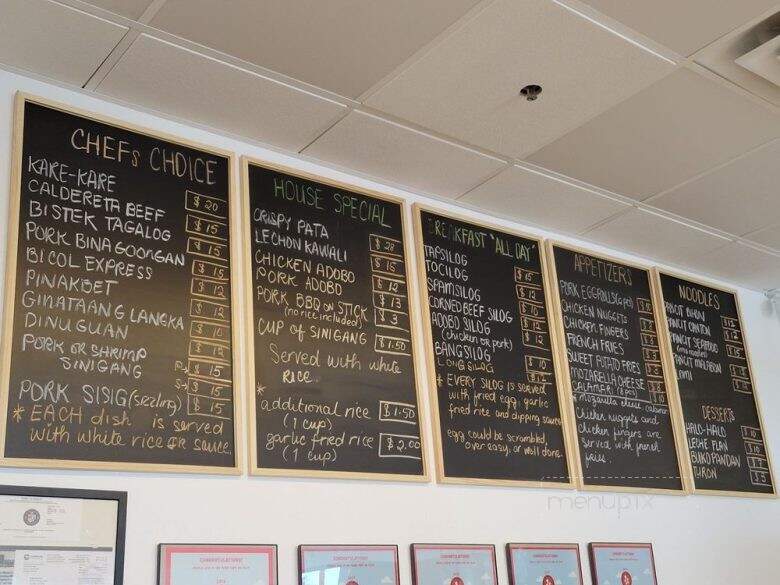 CHEFs CHOICE
KARE-KARE $20
CALDERETA BEEF $15
BISTEK TAGALOG $15
PORK BINAGOONGAN $15
BICOL EXPRESS $15
PINAKBET $12
GINATAANG LANGKA $10
DINUGUAN $12
PORK OR SHRIMP P→ $15
SINIGANG S→ $15
PORK SISIG (sizzling) $15
* EACH dish is served
with white rice OR sauce
HOUSE SPECIAL
CRISPY PATA $28
LECHON KAWALI $15
CHICKEN ADOBO $12
PORK ADOBO $13
PORK BBQ ON STICK $3
(no rice included)
CUP OF SINIGANG $1.50
Served with white
RICE
*
additional rice $1.50
(1 cup)
garlic fried rice $2.00
(1 cup)
BREAKFAST "ALL DAY"
TAPSILOG $15
TOCILOG $12
SPAMSILOG $12
CORNED BEEF SILOG $12
ADOBO SILOG $12
(chicken or pork)
BANGSILOG $10
LONGSILOG $12
* EVERY SILOG IS served
with fried egg, garlic
fried rice and dipping sauce
egg could be scrambled,
over easy, or well done.
APPETIZERS
PORK EGGROLLS
CHICKEN NUGGETS
CHICKEN FINGERS
FRENCH FRIES
SWEET POTATO FRIES
MOZARELLA CHEESE
* Mozarella cheese
chicken nuggets and
chicken fingers are
served with french
fries.
NOODLES
PANCIT BIHON
PANCIT CANTON
PANCIT SEAFOOD
PANCIT MALABON
DESSERTS
HALO-HALO
LECHE PLAN
BUKO PANDAN
TURON
menupix
CONGRATULATIONS!
CONGRATULATIONS!
CONGRATULATIONS!
CONGRATULATIONS!
CONGRATULATIONS!